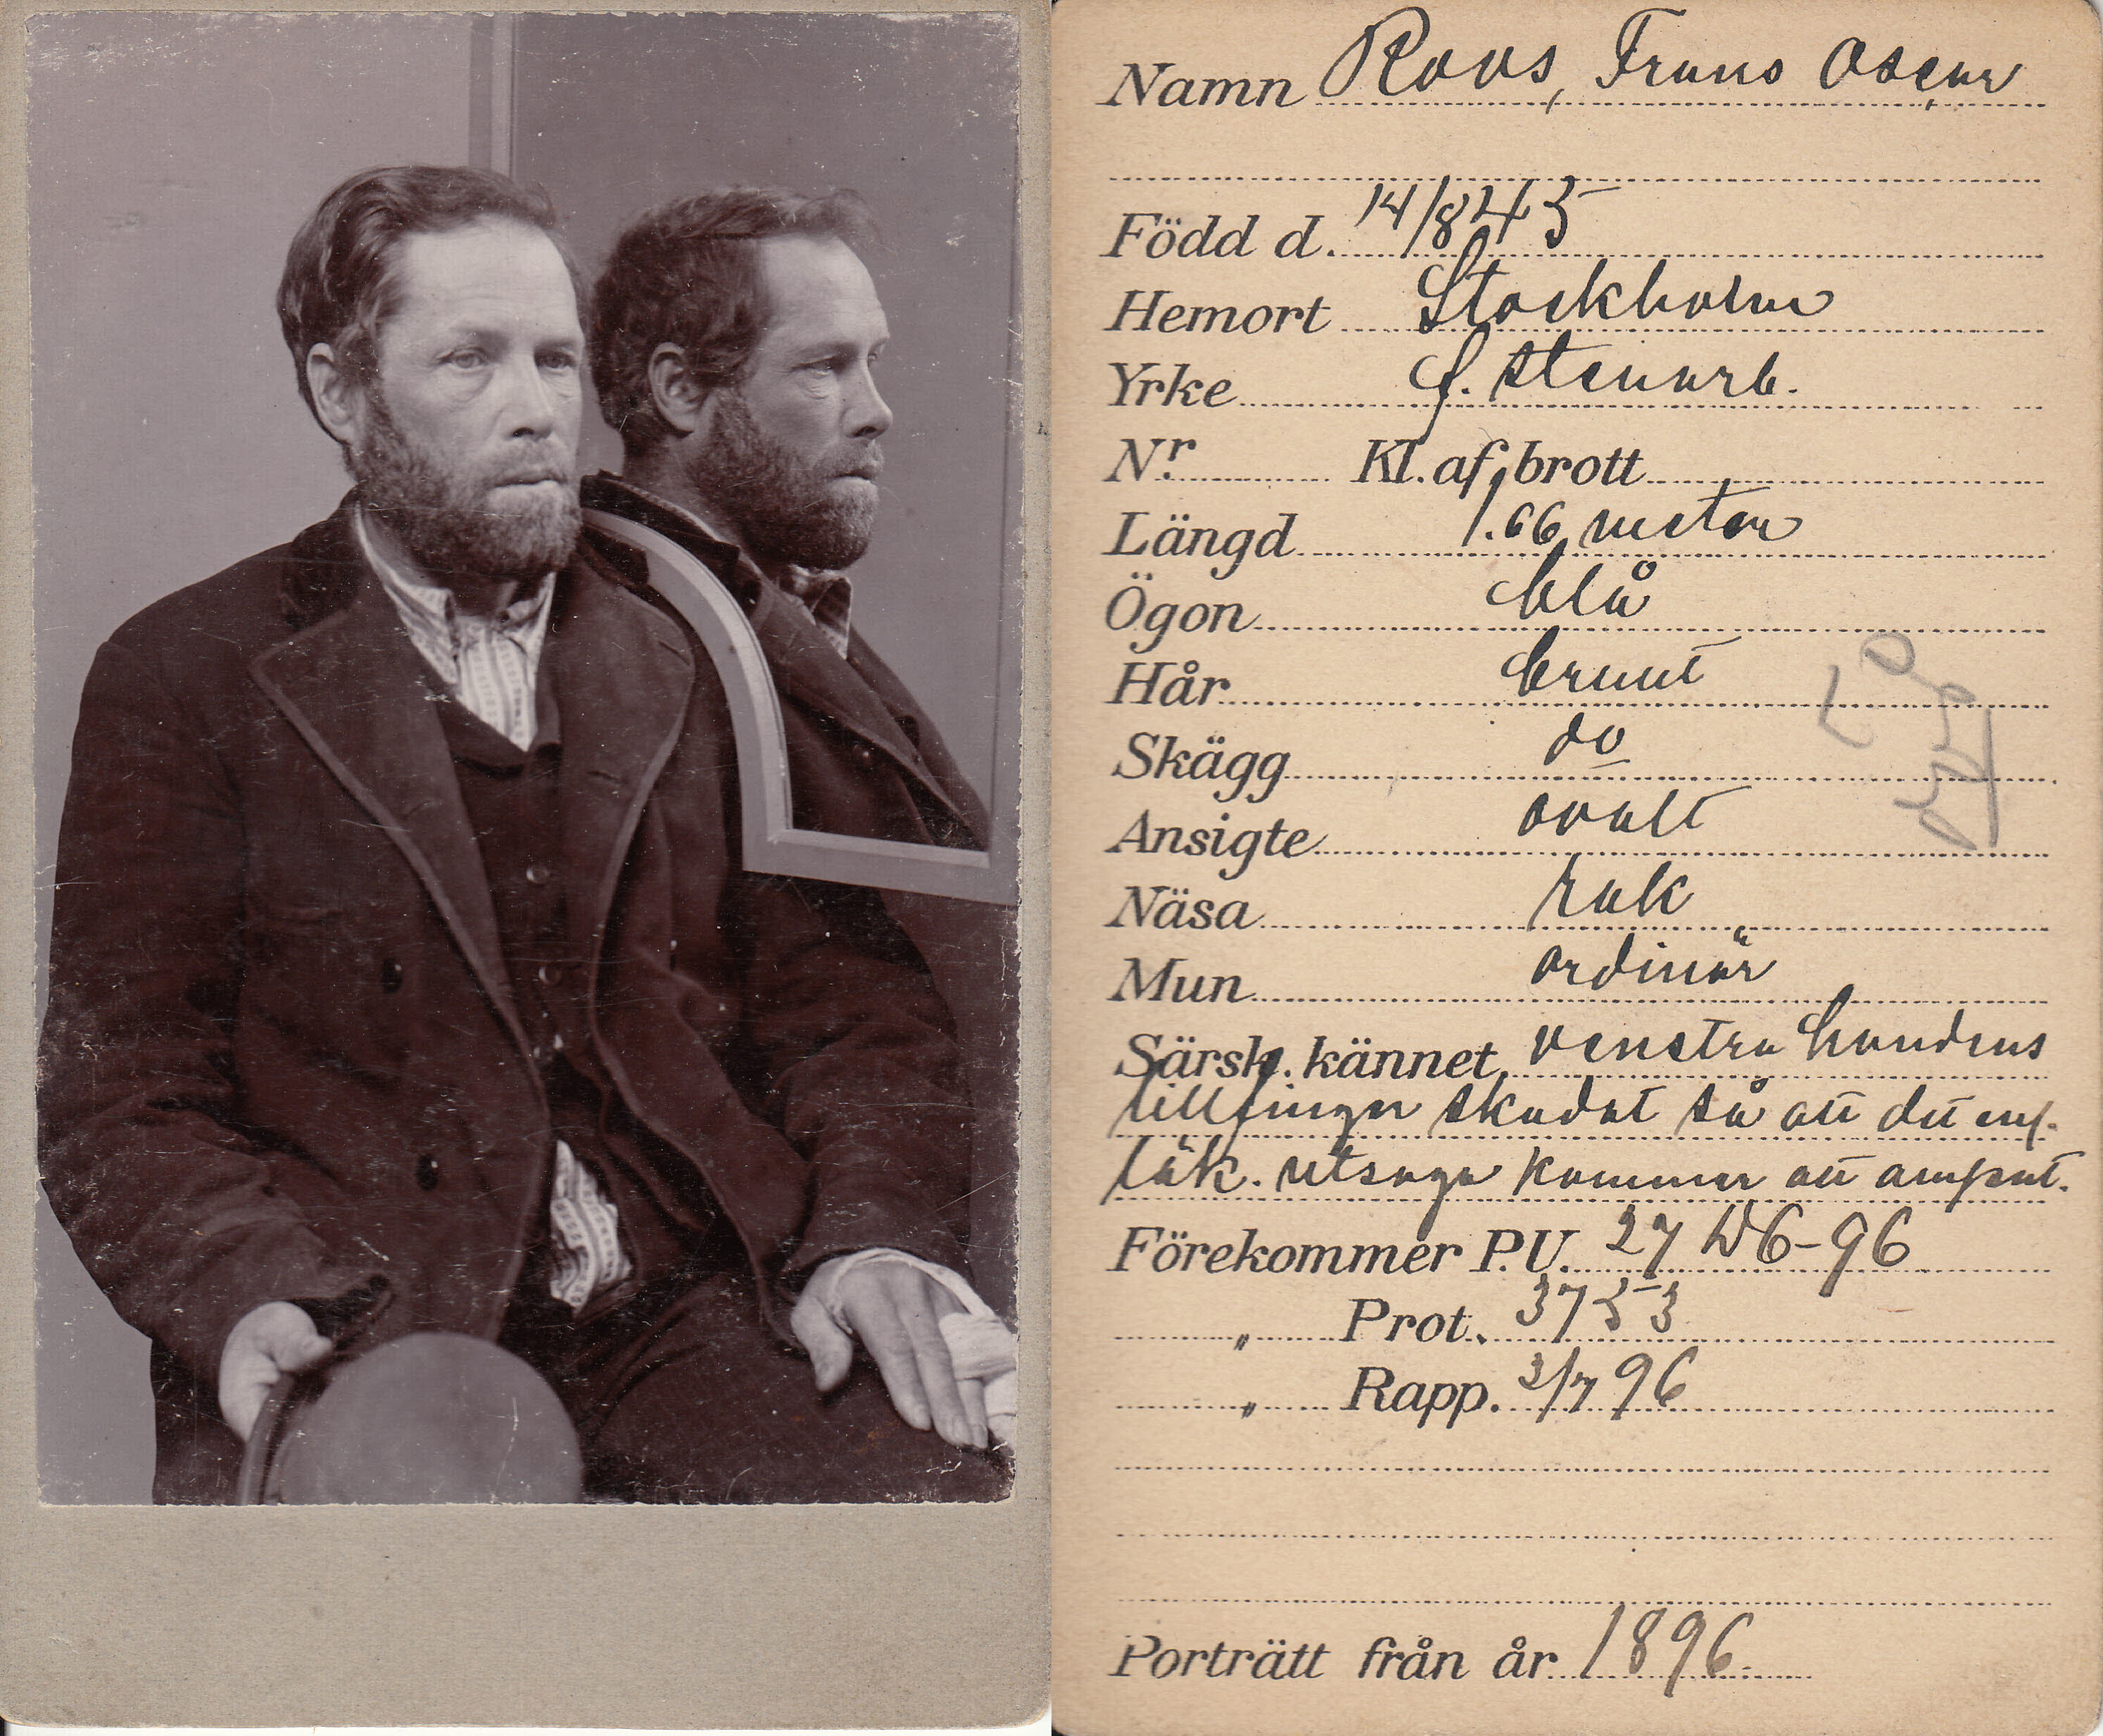 Namn Roos, Frans Oscar
Född d. 14/8 45
Hemort Stockholm
Yrke f. stenarb.
Nr Kl. af brott
Längd 1.66 meter
Ögon blå
Hår brunt
Skägg do
Ansigte ovalt
Näsa rak
Mun ordinär
Särsk. kännet. venstra handens
lillfinger skadat så att det enl.
läk. utsago kommer att amput.
Förekommer P.U. 27 W6-96
„ Prot. 3753
„ Rapp. 3/7 96
Porträtt från år 1896